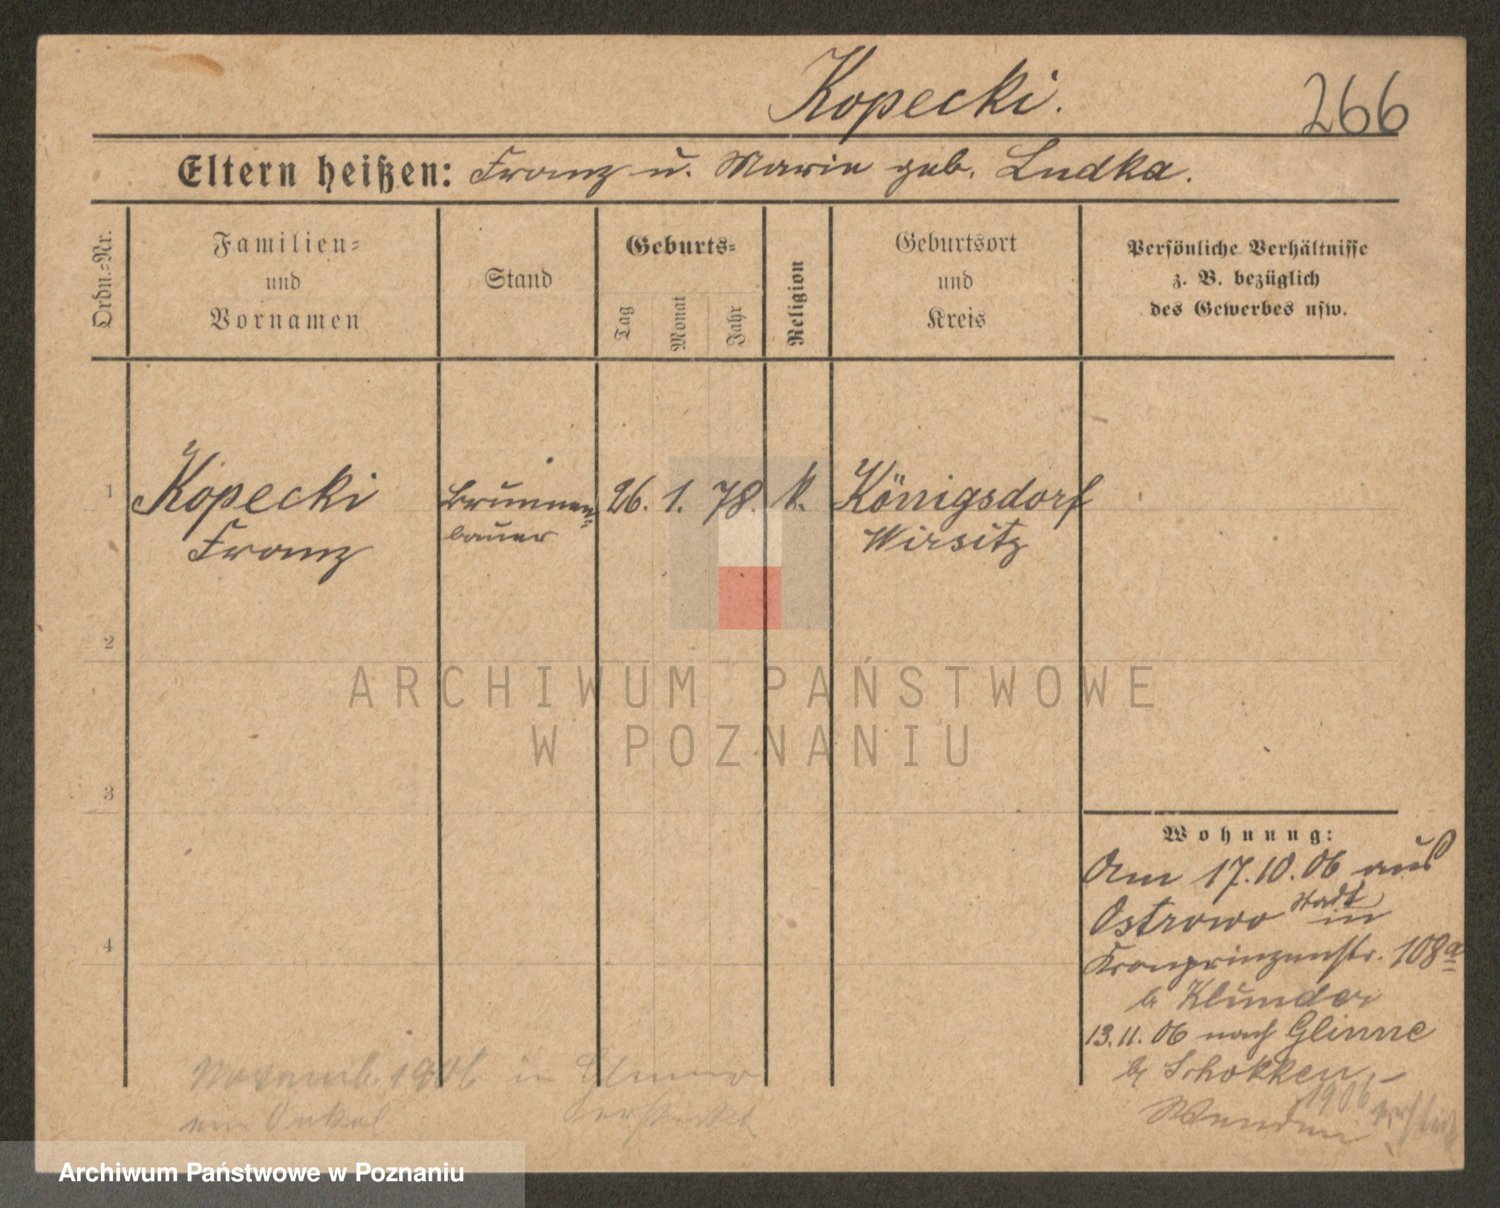 Kopecki.
266
Eltern heißen: Franz u. Marie geb. Ludka.
Ordn.-Nr.
Familien-
und
Vornamen
Stand
Geburts-
Tag
Monat
Jahr
Religion
Geburtsort
und
Kreis
Persönliche Verhältnisse
z. B. bezüglich
des Gewerbes usw.
1
Kopecki
Franz
Brunnen-
bauer
26. 1. 78. k.
Königsdorf
Wirsitz
2
3
4
Wohnung:
Am 17.10.06 aus
Ostrowo Stadt in
Kronprinzenstr. 108a
b Klunder
13.11.06 nach Glinne
b Schokken
1906
Novemb. 1906 in
erstickt
ARCHIWUM PAŃSTWOWE
W POZNANIU
Archiwum Państwowe w Poznaniu